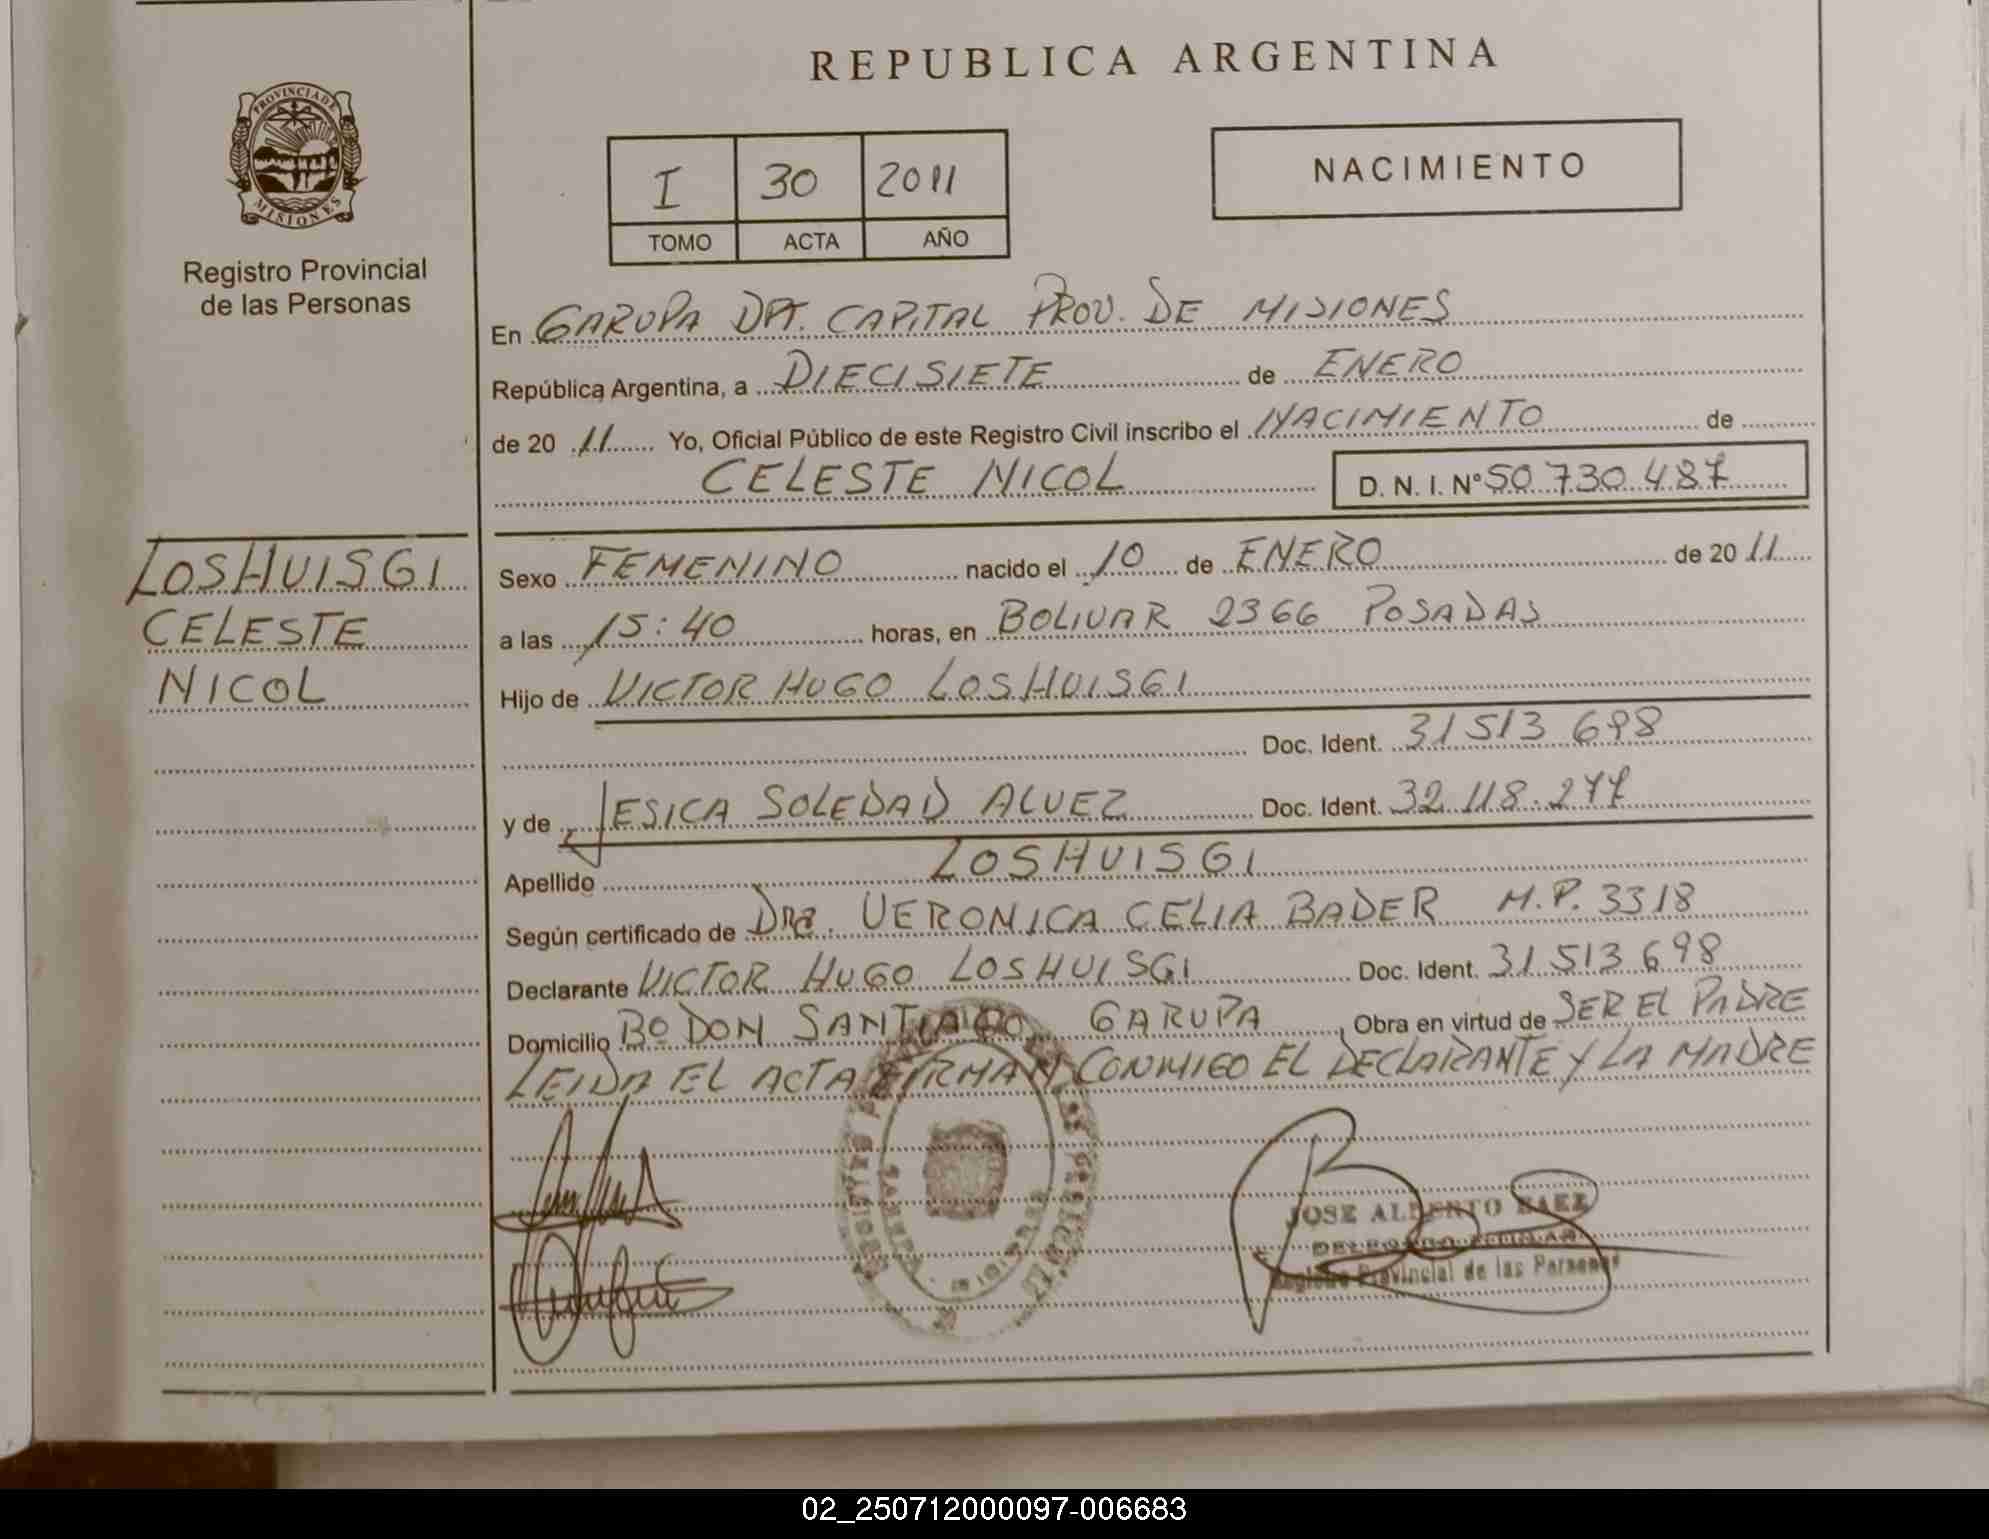 REPUBLICA ARGENTINA
PROVINCIA DE
MISIONES
Registro Provincial
de las Personas
I 30 2011
TOMO ACTA AÑO
NACIMIENTO
En GARUPA DPT. CAPITAL PROV. DE MISIONES
República Argentina, a DIECISIETE de ENERO
de 20 11 Yo, Oficial Público de este Registro Civil inscribo el NACIMIENTO de
CELESTE NICOL D. N. I. Nº 50 730 487
LOSHUISGI
CELESTE
NICOL
Sexo FEMENINO nacido el 10 de ENERO de 20 11
a las 15:40 horas, en BOLIVAR 2366 POSADAS
Hijo de VICTOR HUGO LOSHUISGI
Doc. Ident. 31 513 698
y de JESICA SOLEDAD ALVEZ Doc. Ident. 32 118.277
Apellido LOSHUISGI
Según certificado de Dra. VERONICA CELIA BADER M.P. 3318
Declarante VICTOR HUGO LOSHUISGI Doc. Ident. 31 513 698
Domicilio Bº DON SANTIAGO GARUPA, Obra en virtud de SER EL PADRE
LEIDA EL ACTA FIRMAN CONMIGO EL DECLARANTE Y LA MADRE
JOSE ALBERTO BAEZ
Registro Provincial de las Personas
02_250712000097-006683